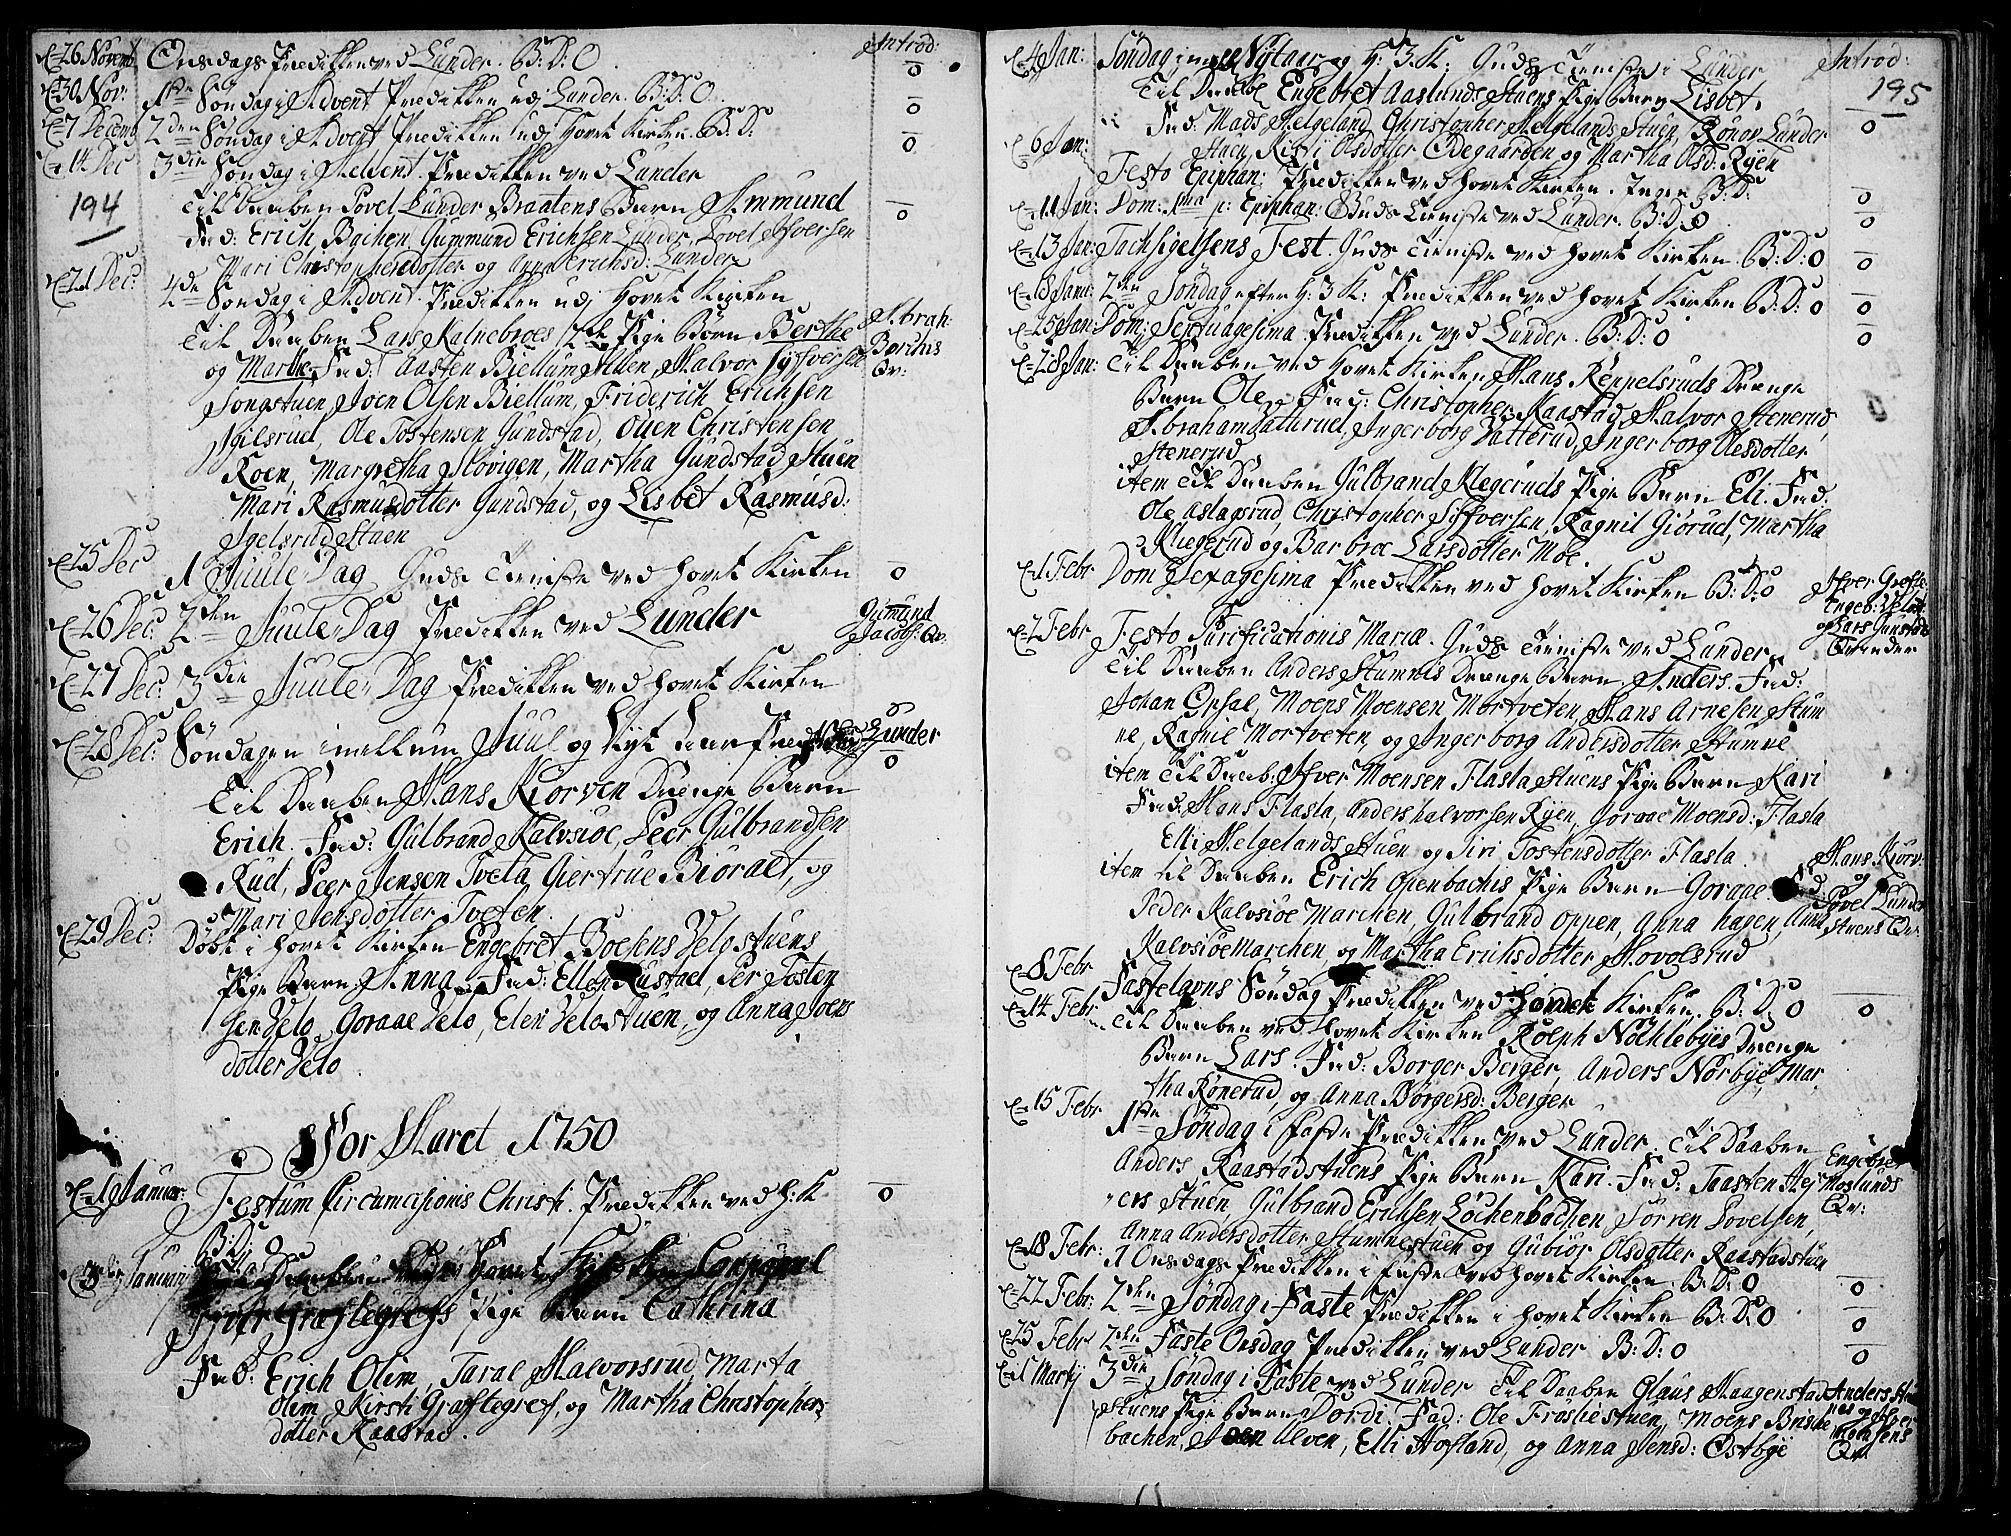 d 26 Novemb. Onsdags Prædikken ved Lunder. B: D: O
Introd: O
d 30 Nov: 1ste Søndag i Advent Prædikken udj Lunder. B: D: O
O
d 7 Decemb 2den Søndag i Advent Prædikken udj Hovet Kirken. B: D:
O
d 14 Dec 3die Søndag i Advent Prædikken ved Lunder
194
Til Daaben Povel Lunder Braatens Barn Ammund
O
Fad: Erich Bachen, Gummund Erichsen Lunder, Povel Ifversen
Mari Christophersdotter og Anna Erichsd: Lunder
d 21 Dec: 4de Søndag i Advent Prædikken udj Hovet Kirken
Til Daaben Lars Kalnebroes 2de Pige Børn Berthe
og Marthe. Fad: Aasten Biellum Stuen, Halvor Syfversen
Abrah:
Qv:
Songstuen, Joen Olsen Biellum, Friderich Erichsen
Ole Tostensen Gundstad, Ouen Christensen
Roen, Margretha Hovigen, Martha Gundstad Stuen
Mari Rasmusdotter Gundstad, og Lisbet Rasmusd:
Igelsrud Stuen
d 25 Dec 1 Juule Dag Guds Tieniste ved Hovet Kirken
O
d 26 Dec: 2den Juule Dag Prædikken ved Lunder
Gumund
Jacobs: Qv:
d 27 Dec: 3die Juule Dag Prædikken ved Hovet Kirken
d 28 Dec: Søndagen imellum Juul og Nyt Aar Præd: ved Lunder
O
Til Daaben Hans Kiorven Drenge Barn
Erich. Fad: Gulbrand Kalvsiøe, Peer Gulbrandsen
Rud, Peer Jensen Tveta, Giertrue Bioraet, og
Mari Jensdotter Tveten.
d 29 Dec: Døbt i Hovet Kirken Engebret Boesens Velo stuens
Pige Barn Anna. Fad: Ellen Rustad, Per Tosten
sen Velo, Goraae Velo, Elen Velostuen, og Anna Joens
dotter Velo.
For Aaret 1750
d 1 Januar: Festum Circumcisionis Christi. Prædikken ved H: K
O
B: D: O
Januar
Pige Barn Cathrina
Fad: Erich Olim, Taral Halvorsrud, Marta
Olim, Kirsti Graftegref, og Martha Christophers
dotter Raastad.
d 4 Jan: Søndag imell Nytaar og H: 3. K: Guds Tieniste i Lunder
Introd:
195
Til Daabe Engebret Aaslunds Stuens Pige Barn Lisbet.
Fad: Mads Helgeland, Christopher Helgelands Stuen, Rønov Lunder
O
Stuen, Kisti Olsdotter Ødegaarden og Martha Olsd: Ryen
d 6 Jan: Festo Epiphan: Prædikken ved Hovet Kirken. Ingen B: D:
O
d 11 Jan: Dom: 1ma p: Epiphan: Guds Tieniste ved Lunder. B: D: O
O
d 13 Jan: Tachsigelsens Fest. Guds Tieniste ved Hovet Kirken. B: D: O
O
d 18 Janu: 2den Søndag efter H: 3 K: Prædikken ved Hovet Kirken B: D: O
O
d 25 Jan: Dom: Septuagesima Prædikken ved Lunder. B: D: O
O
d 28 Jan: Til Daaben ved Hovet Kirken Hans Reppelsruds Drænge
Barn Ole. Fad: Christopher Raastad, Halvor Stenerud,
Abraham Vatterud, Ingerborg Vatterud, Ingerborg Olesdotter
Stenerud
item Til Daaben Gulbrand Klegeruds Pige Barn Eli. Fad.
Ole Aslagsrud, Christopher Syfversen, Ragnil Giørud, Martha
Kliegerud og Barbroe Larsdotter Moe.
d 1 Febr Dom Sexagesima Prædikken ved Hovet Kirken B: D: O
Ifver Grefte
Engeb: Velo
og Lars Gunstads
Qvinder
d 2 Febr Festo Purificationis Mariæ. Guds Tieniste ved Lunder
Til Daaben Anders Stumnis Drenge Barn. Anders. Fad:
Johan Opsal, Moens Moensen Mortveten, Hans Arnesen Stum
ne, Ragnil Mortveten, og Ingerborg Andersdotter Stumne
item Til Daab: Ifver Moensen Flasla Stuens Pige Barn Kari
Fad: Hans Flasla, Anders Halvorsen Ryen, Goraae Moensd: Flasla
Elli Helgelands Stuen og Siri Tostensdotter Flasla.
item til Daaben Erich Openbachis Pige Barn Goraae.
Hans Kiørv:
og
Povel Lunder
Stuens Qv:
Peder Kalvsiøe Marchen, Gulbrand Oppen, Anna Hagen, Anna
Kalvsiøe Marchen, og Martha Erichsdotter Hovolstud
d 8 Febr Fastelavns Søndag Prædikken ved Hovet Kirken. B: D: O
O
d 14 Febr Til Daaben ved Hovet Kirken Rolph Nochlebyes Drænge
Barn Lars. Fad: Borger Berger, Anders Norbye, Mar
tha Rønerud, og Anna Borgersd: Berger
d 15 Febr 1ste Søndag i Faste Prædikken ved Lunder. Til Daaben
Anders Raastadstuens Pige Barn Kari. Fad: Taasten Hej
Engebret
Moslunds
Qv:
ers Stuen, Gulbrand Erichsen Lochenbachen, Sørren Povelsen,
Anna Andersdotter Stumnestuen og Gubiør Olsdotter Raastadstuen
d 18 Febr: 1 Onsdags Prædikken i Faste ved Hovet Kirken. B: D: O
O
d 22 Febr: 2den Søndag i Faste Prædikken i Hovet Kirken B: D: O
O
d 25 Febr 2den Faste Onsdag Prædikken ved Lunder B: D: O
O
d 1 Martij 3die Søndag i Faste ved Lunder Til Daaben Glaus Haagenstad
Anders
Stuens Pige Barn Dordi. Fad: Ole Frøslie Stuen, Moens
Moensens
Qv:
bachen, Joen Ulven, Elli Hofland, og Anna Jensd: Østbye